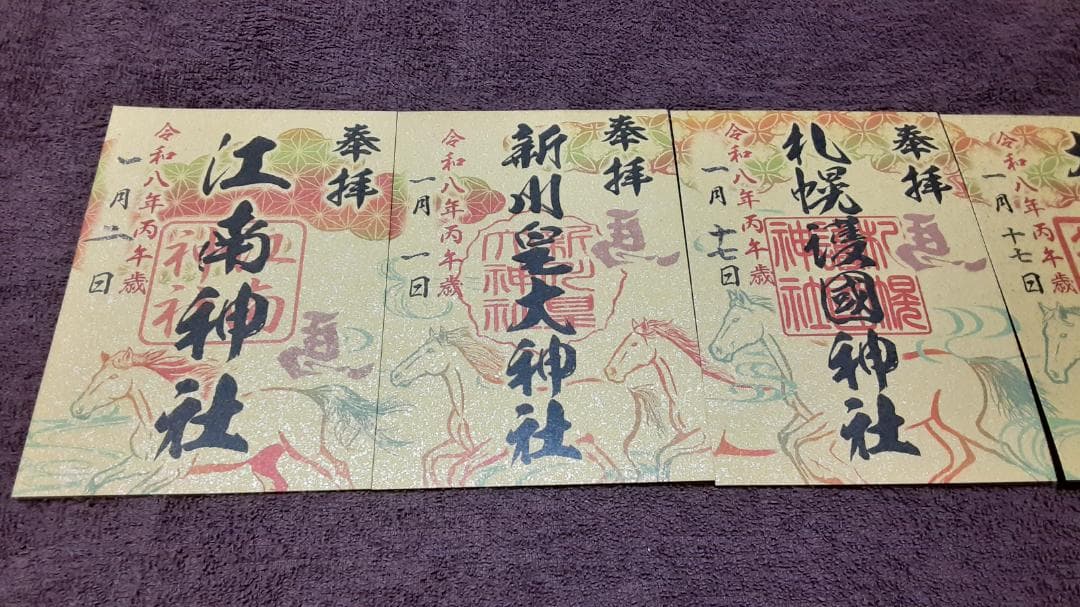 奉拝
江南神社
江南神社
馬
令和八年丙午歳
一月二日
奉拝
新川皇大神社
馬
令和八年丙午歳
一月一日
奉拝
札幌護國神社
札幌護國神社
馬
令和八年丙午歳
一月十七日
令和八年丙午歳
一月十七日